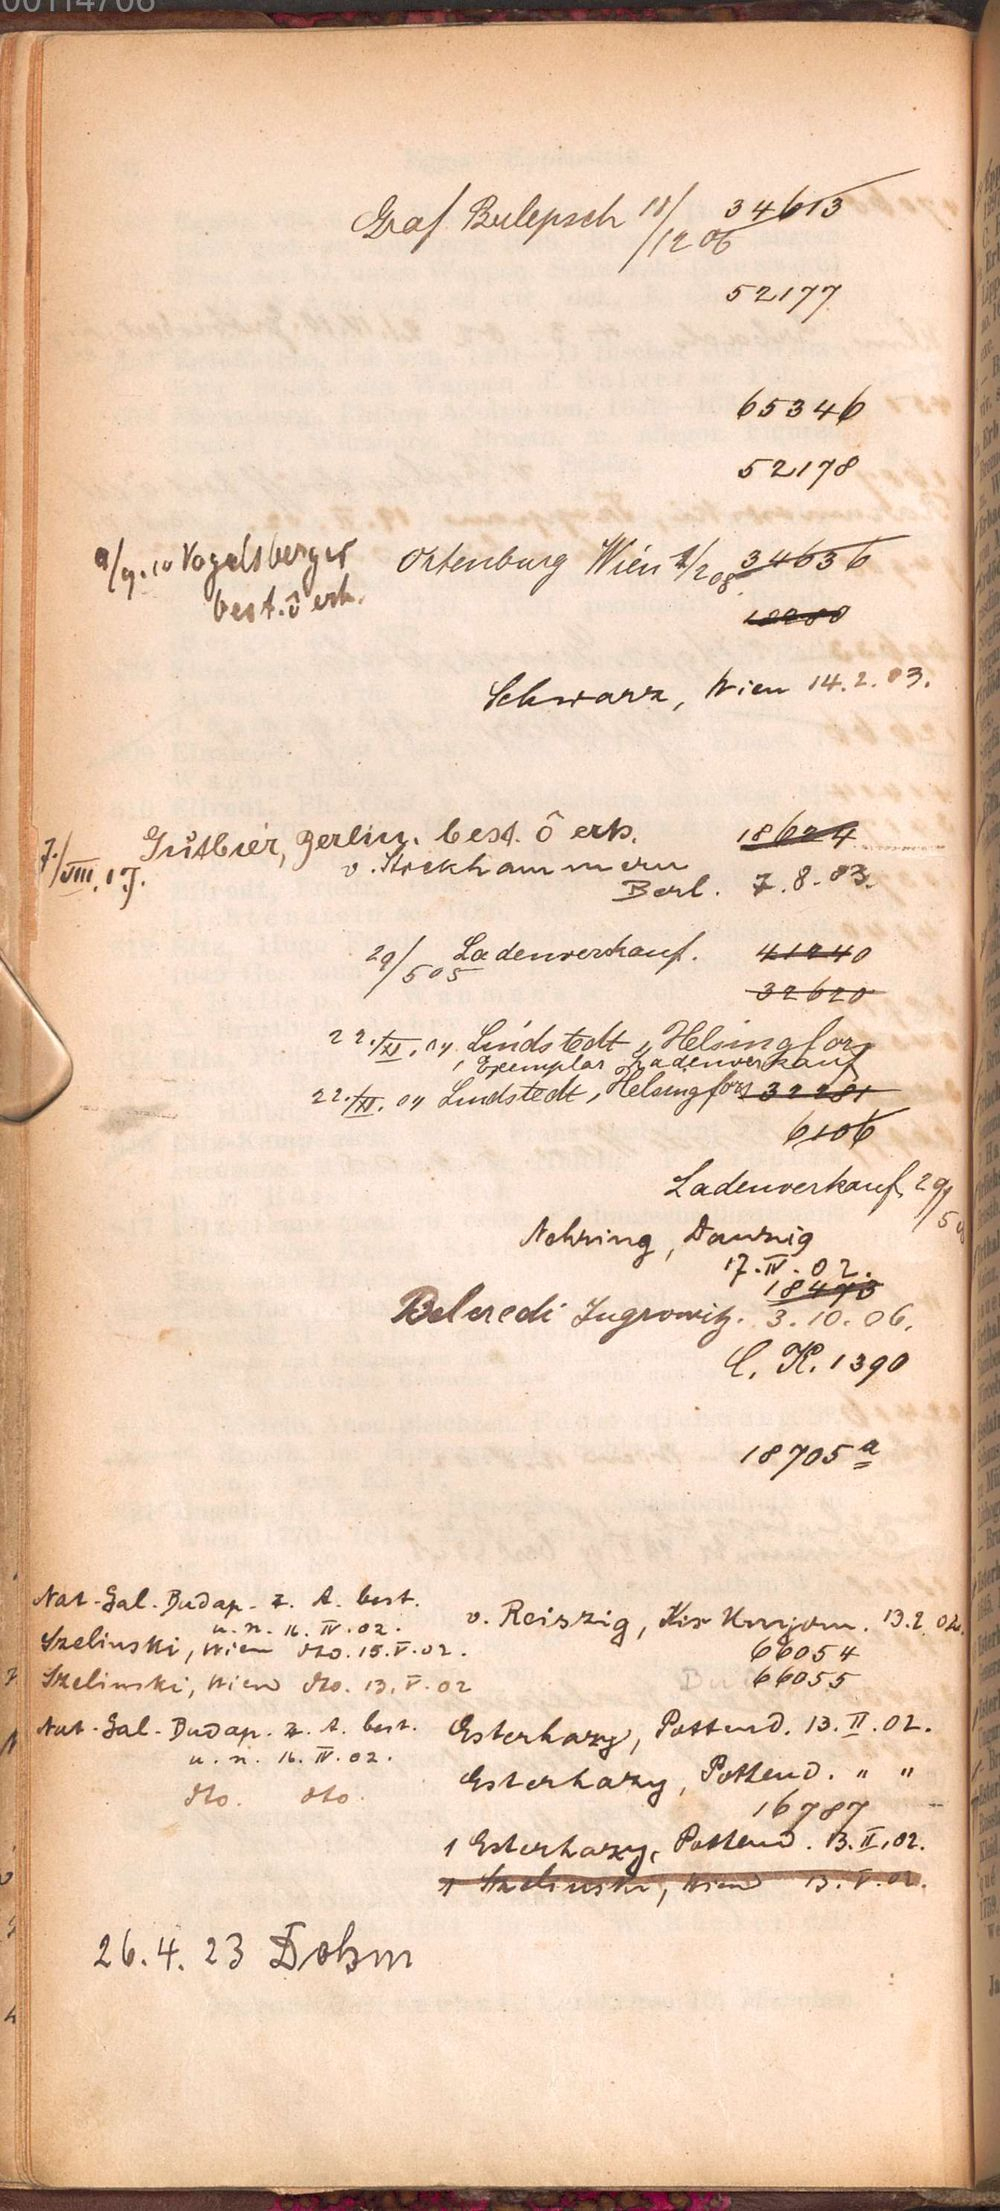 00114706
Graf Berlepsch 10/12 06 34613
52177
65346
52178
9/9.10 Vogelsberger Ortenburg Wien 1/2 08 34636
best. ô erh.
18280
Schwarz, Wien 14.2.03.
7./VIII.17. Gütbier, Berlin. best. ô erh. 18624
v. Stockhammern
Berl. 7.8.03.
29/5 05 Ladenverkauf. 41240
32620
22./XI. 04 Lindstedt, Helsingfors
1 Exemplar Ladenverkauf
22./XI. 04 Lindstedt, Helsingfors 32281
6106
Ladenverkauf 29/5
Nehring, Danzig
17.IV.02.
18473
Belcredi Ingrowitz. 3.10.06.
C. K. 1390
18705 a
Nat-Gal. Budap. z. A. best.
u. n. 16. IV. 02.
v. Reiszig, Kis Unyom. 13.2.02.
Szelinski, Wien dto. 15.V.02.
66054
Szelinski, Wien dto. 13.V.02
66055
Nat-Gal. Budap. z. A. best.
Esterhazy, Pottend. 13.II.02.
u. n. 16. IV. 02.
Esterhazy, Pottend. " "
dto. dto.
16787
1 Esterhazy, Pottend. 13.II.02.
1 Szelinski, Wien 13.V.02.
26.4.23 Dohm